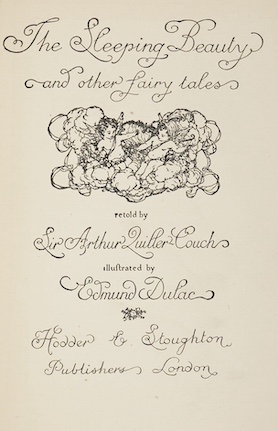 The Sleeping Beauty
and other fairy tales
retold by
Sir Arthur Quiller-Couch
illustrated by
Edmund Dulac
Hodder & Stoughton
Publishers London